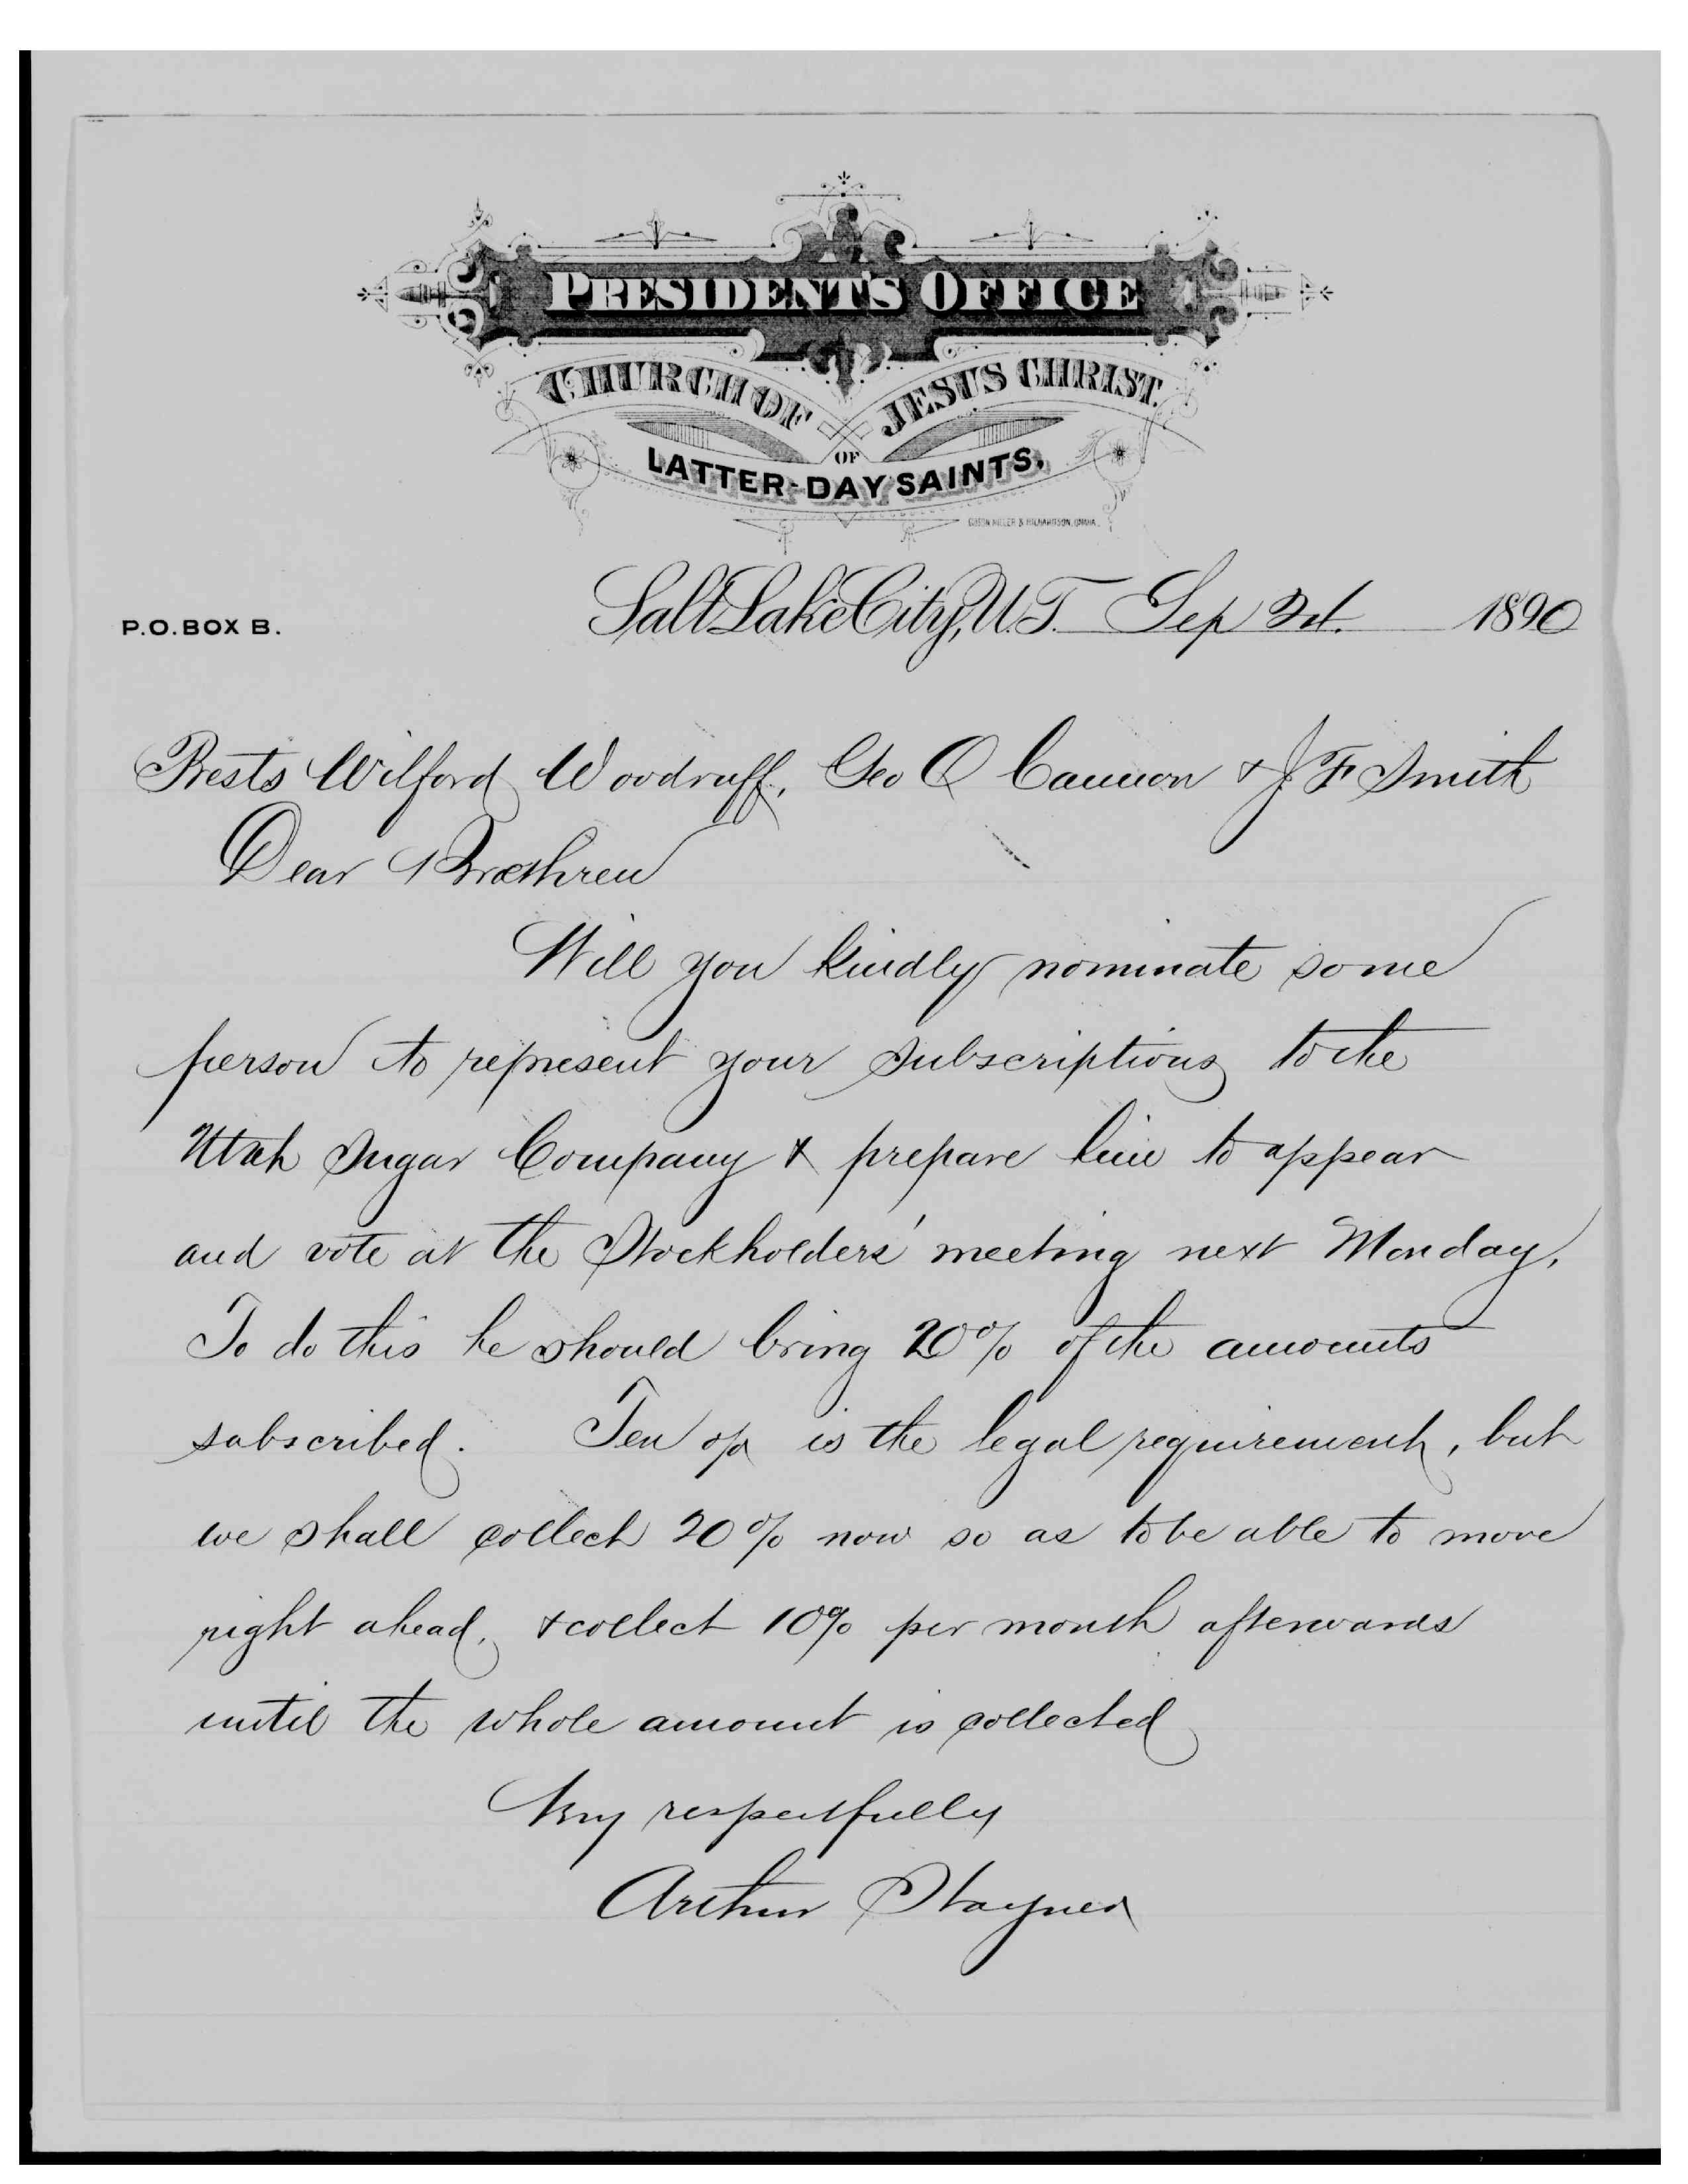 PRESIDENT'S OFFICE
CHURCH OF JESUS CHRIST.
OF
LATTER-DAY SAINTS.
P.O. BOX B.
Salt Lake City, U.T. Sep 2d. 1890
Prests Wilford Woodruff, Geo Q Cannon & J F Smith
Dear Brethren
Will you kindly nominate some
person to represent your subscriptions to the
Utah Sugar Company & prepare him to appear
and vote at the Stockholders' meeting next Monday.
To do this he should bring 20% of the amounts
subscribed. Ten % is the legal requirement, but
we shall collect 20% now so as to be able to move
right ahead, & collect 10% per month afterwards
until the whole amount is collected
Very respectfully
Arthur Stayner